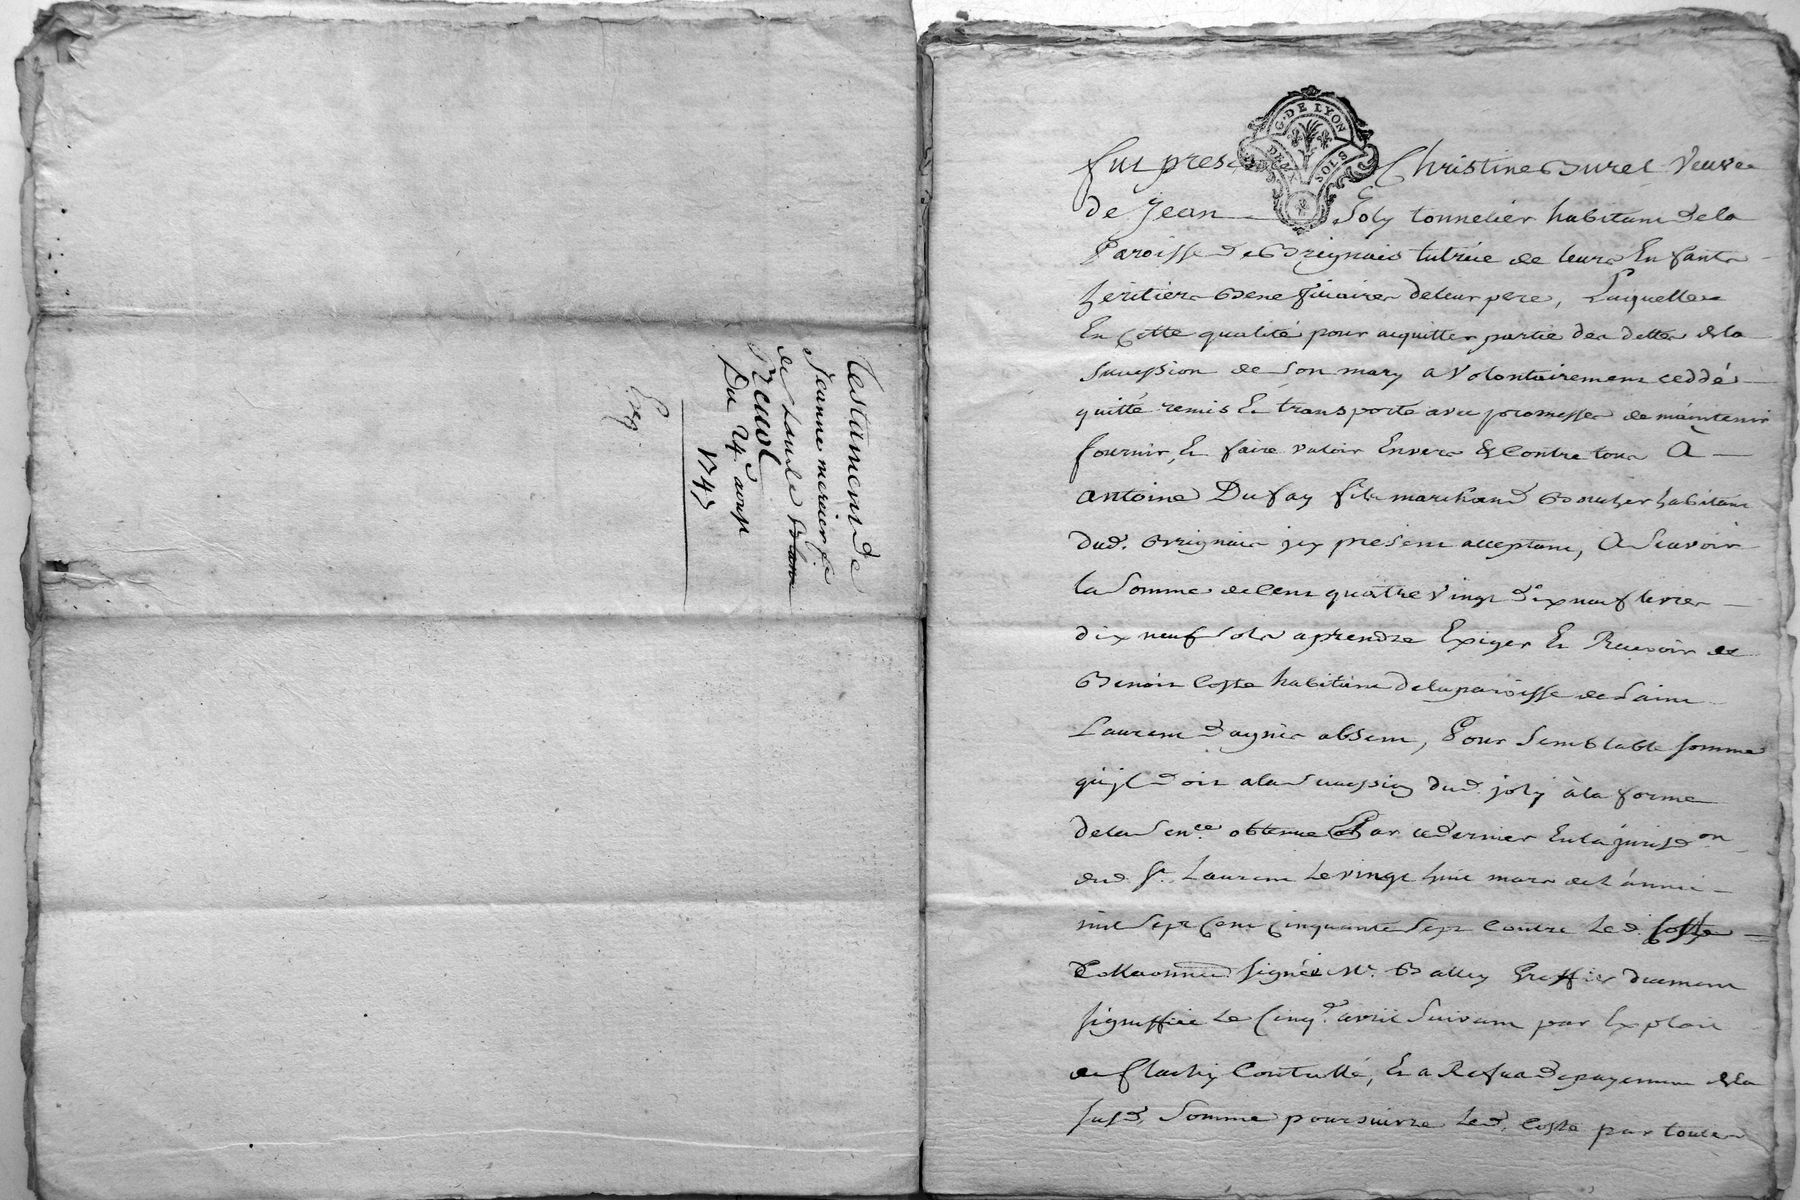 Testament de
Jeanne mercier fe
de Claude
Du 24 aoust
1747
Exp
G. DE LYON
DEUX SOLS
fut presente Christine Burel veuve
de Jean Joly tonnelier habitant de la
Paroisse de Brignais tutrice de leurs Enfants
heritiers Beneficiaires de leur pere, Laquelle
En Cette qualité pour acquitter partie des dettes de la
succession de son mary a volontairement ceddé
quitté remis Et transporté avec promesses de maintenir
fournir, Et faire valoir Envers Et Contre tous A
antoine Dufay fils marchand Boucher habitant
dud. Brignais jcy present acceptant, A Scavoir
la Somme de Cent quattre vingt dix neuf livres
dix neuf sols a prendre Exiger Et Recevoir de
Benoit Coste habitant de la paroisse de Saint
Laurent d'agnis absent, Pour Semblable somme
qu'jl doit a la Succession dud. joly à la forme
de la Sence. obtenue Par ce dernier En la jurisdon
dud. St. Laurent Le vingt huit mars de L'année
mil Sept Cent Cinquante Sept Contre Led. Coste
Collationnée Signée Greffier duement
signiffiée Le Cinqe. avril Suivant par Exploit
de Controllé, Et a Refus de payement de la
susd. Somme poursuivre Led. Coste par toutes